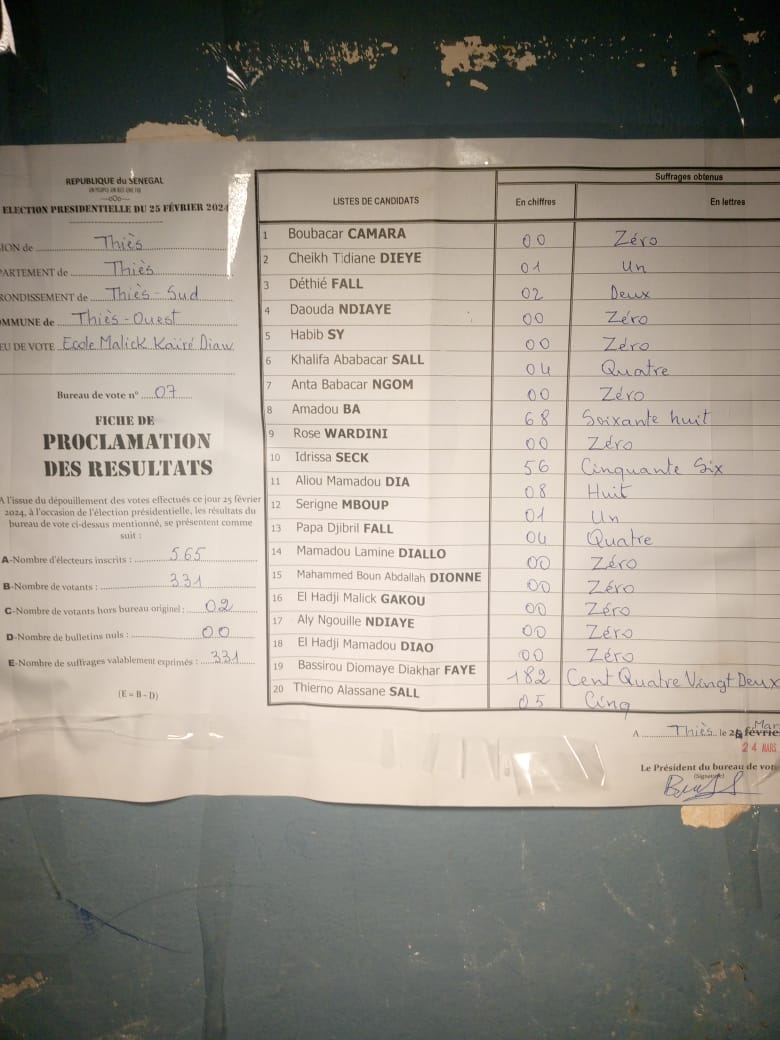 REPUBLIQUE du SENEGAL
UN PEUPLE-UN BUT-UNE FOI
---oOo---
ELECTION PRESIDENTIELLE DU 25 FÉVRIER 2024
ION de Thiès
PARTEMENT de Thiès
RONDISSEMENT de Thiès-Sud
MMUNE de Thiès-Ouest
EU DE VOTE Ecole Malick Kaïré Diaw
Bureau de vote n° 07
FICHE DE
PROCLAMATION
DES RESULTATS
A l'issue du dépouillement des votes effectués ce jour 25 février
2024, à l'occasion de l'élection présidentielle, les résultats du
bureau de vote ci-dessus mentionné, se présentent comme
suit :
A-Nombre d'électeurs inscrits : 565
B-Nombre de votants : 331
C-Nombre de votants hors bureau originel : 02
D-Nombre de bulletins nuls : 00
E-Nombre de suffrages valablement exprimés : 331
(E = B – D)
LISTES DE CANDIDATS
Suffrages obtenus
En chiffres En lettres
1 Boubacar CAMARA 00 Zéro
2 Cheikh Tidiane DIEYE 01 Un
3 Déthié FALL 02 Deux
4 Daouda NDIAYE 00 Zéro
5 Habib SY 00 Zéro
6 Khalifa Ababacar SALL 04 Quatre
7 Anta Babacar NGOM 00 Zéro
8 Amadou BA 68 Soixante huit
9 Rose WARDINI 00 Zéro
10 Idrissa SECK 56 Cinquante Six
11 Aliou Mamadou DIA 08 Huit
12 Serigne MBOUP 01 Un
13 Papa Djibril FALL 04 Quatre
14 Mamadou Lamine DIALLO 00 Zéro
15 Mahammed Boun Abdallah DIONNE 00 Zéro
16 El Hadji Malick GAKOU 00 Zéro
17 Aly Ngouille NDIAYE 00 Zéro
18 El Hadji Mamadou DIAO 00 Zéro
19 Bassirou Diomaye Diakhar FAYE 182 Cent Quatre Vingt Deux
20 Thierno Alassane SALL 05 Cinq
Mar
A Thiès le 25 févrie
24 MARS
Le Président du bureau de vot
(Signature)